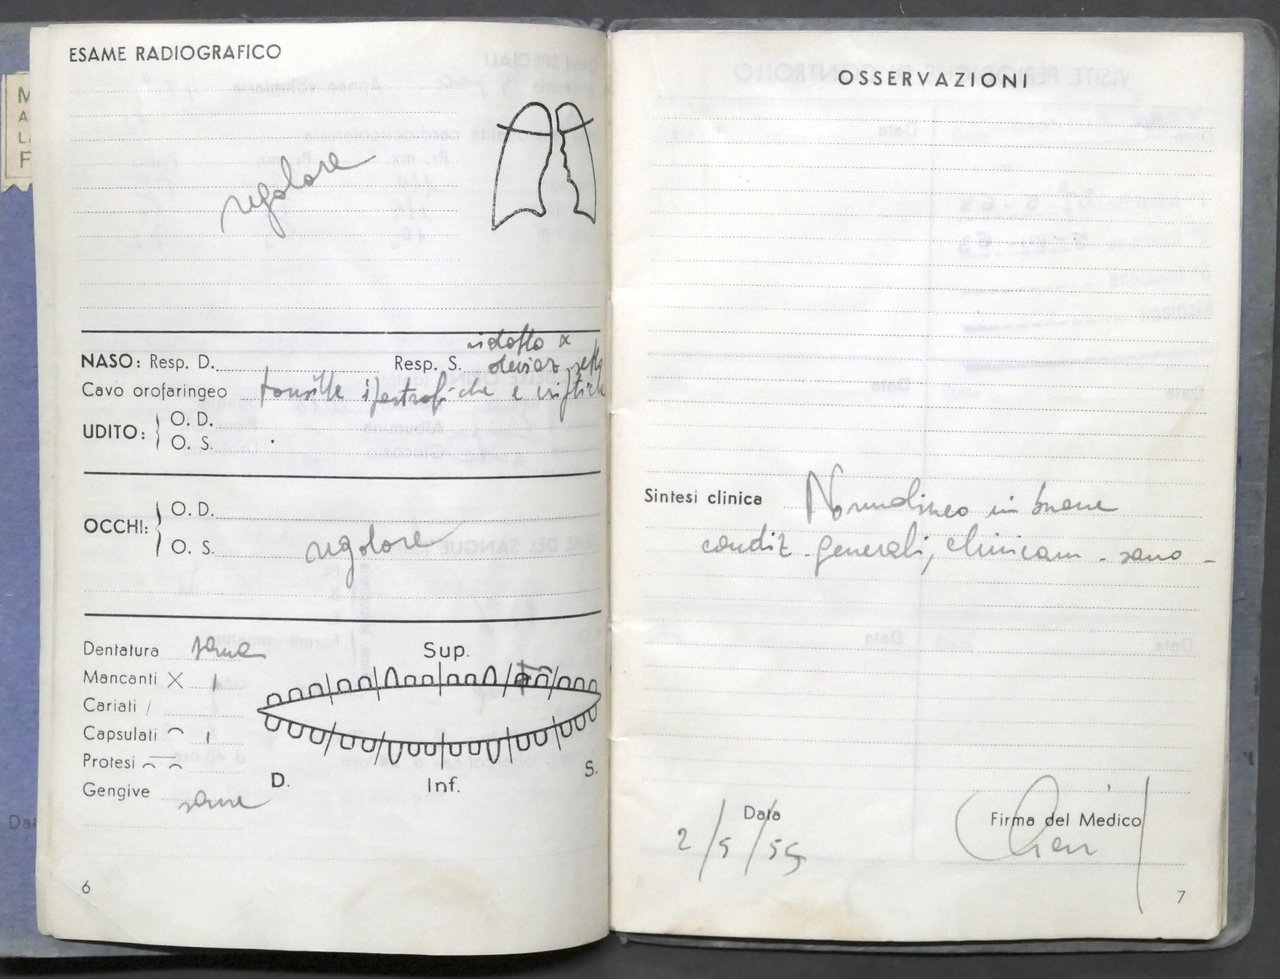 M
A
LA
F
ESAME RADIOGRAFICO
regolare
NASO: Resp. D. Resp. S. ridotta x
deviaz. setto
Cavo orofaringeo tonsille ipertrofiche e criptiche
UDITO: O. D.
O. S.
OCCHI: O. D.
O. S. regolare
Dentatura sana
Mancanti X 1
Cariati /
Capsulati 1
Protesi
Gengive sane
Sup.
D. Inf. S.
6
OSSERVAZIONI
Sintesi clinica Normolineo in buone
condiz. generali, clinicam. sano -
Data
2/5/55
Firma del Medico
7